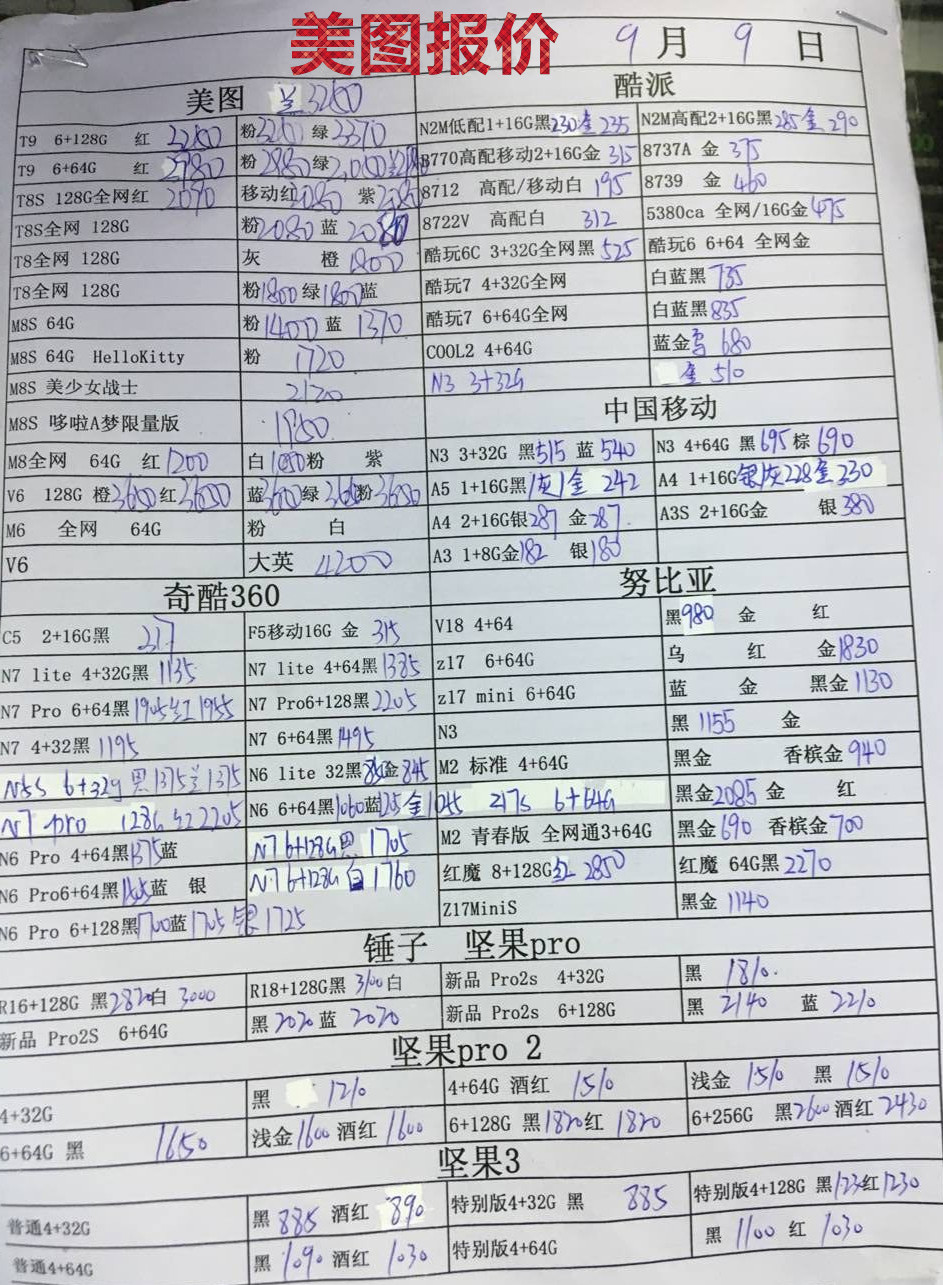 美图报价
9月9日
美图 兰3260
酷派
T9 6+128G 红 3260 粉3260 绿3370
N2M低配1+16G黑230金235 N2M高配2+16G黑285金290
T9 6+64G 红 2780 粉 2880 绿
8770高配移动2+16G金 315 8737A 金 375
T8S 128G全网红 2070 移动红2080 紫2080
8712 高配/移动白 195 8739 金 460
T8S全网 128G 粉2080 蓝 2080
8722V 高配白 312 5380ca 全网/16G金475
T8全网 128G 灰 橙 1800
酷玩6C 3+32G全网黑 525 酷玩6 6+64 全网金
T8全网 128G 粉1800绿1800蓝
酷玩7 4+32G全网 白蓝黑735
M8S 64G 粉1400蓝 1370
酷玩7 6+64G全网 白蓝黑835
M8S 64G HelloKitty 粉 1720
COOL2 4+64G 蓝金 680
M8S 美少女战士 2120
N3 3+32G 金 510
M8S 哆啦A梦限量版 1950
中国移动
M8全网 64G 红 1200 白 粉 紫
N3 3+32G 黑515 蓝 540 N3 4+64G 黑695棕690
V6 128G 橙3600红3600 蓝3600绿 粉3600
A5 1+16G黑 灰 金 242 A4 1+16G银灰228金230
M6 全网 64G 粉 白
A4 2+16G银287 金287 A3S 2+16G金 银380
V6 大英 4200
A3 1+8G金182 银180
奇酷360
努比亚
C5 2+16G黑 217 F5移动16G 金 315
V18 4+64 黑980 金 红
N7 lite 4+32G黑 1135 N7 lite 4+64黑1385
z17 6+64G 乌 红 金1830
N7 Pro 6+64黑1905红1955 N7 Pro6+128黑2205
z17 mini 6+64G 蓝 金 黑金1130
N7 4+32黑 1195 N7 6+64黑1495
N3 黑 1155 金
N5S 6+32g 黑1375兰1375 N6 lite 32黑 金845
M2 标准 4+64G 黑金 香槟金940
N7 pro 128G 红2205 N6 6+64黑1060蓝 金1055
Z17s 6+64G 黑金2085 金 红
N6 Pro 4+64黑1375蓝 N7 6+128G黑 1705
M2 青春版 全网通3+64G 黑金690 香槟金700
N6 Pro6+64黑 蓝 银 N7 6+128G 白 1760
红魔 8+128G红 2850 红魔 64G黑2270
N6 Pro 6+128黑1700蓝1705银1725
Z17MiniS 黑金 1140
锤子 坚果pro
R16+128G 黑2820白 3000 R18+128G黑 3100白 新品 Pro2s 4+32G 黑 1810.
新品 Pro2S 6+64G 黑2020蓝 2020 新品 Pro2s 6+128G 黑 2140 蓝 2210
坚果pro 2
4+32G 黑 1210 4+64G 酒红 1510 浅金 1510 黑 1510
6+64G 黑 1650 浅金1600酒红1600 6+128G 黑1820红 1820 6+256G 黑2600酒红2430
坚果3
普通4+32G 黑885 酒红 890 特别版4+32G 黑 885 特别版4+128G 黑 红1230
普通4+64G 黑 1090 酒红 1030 特别版4+64G 黑 1100 红 1030